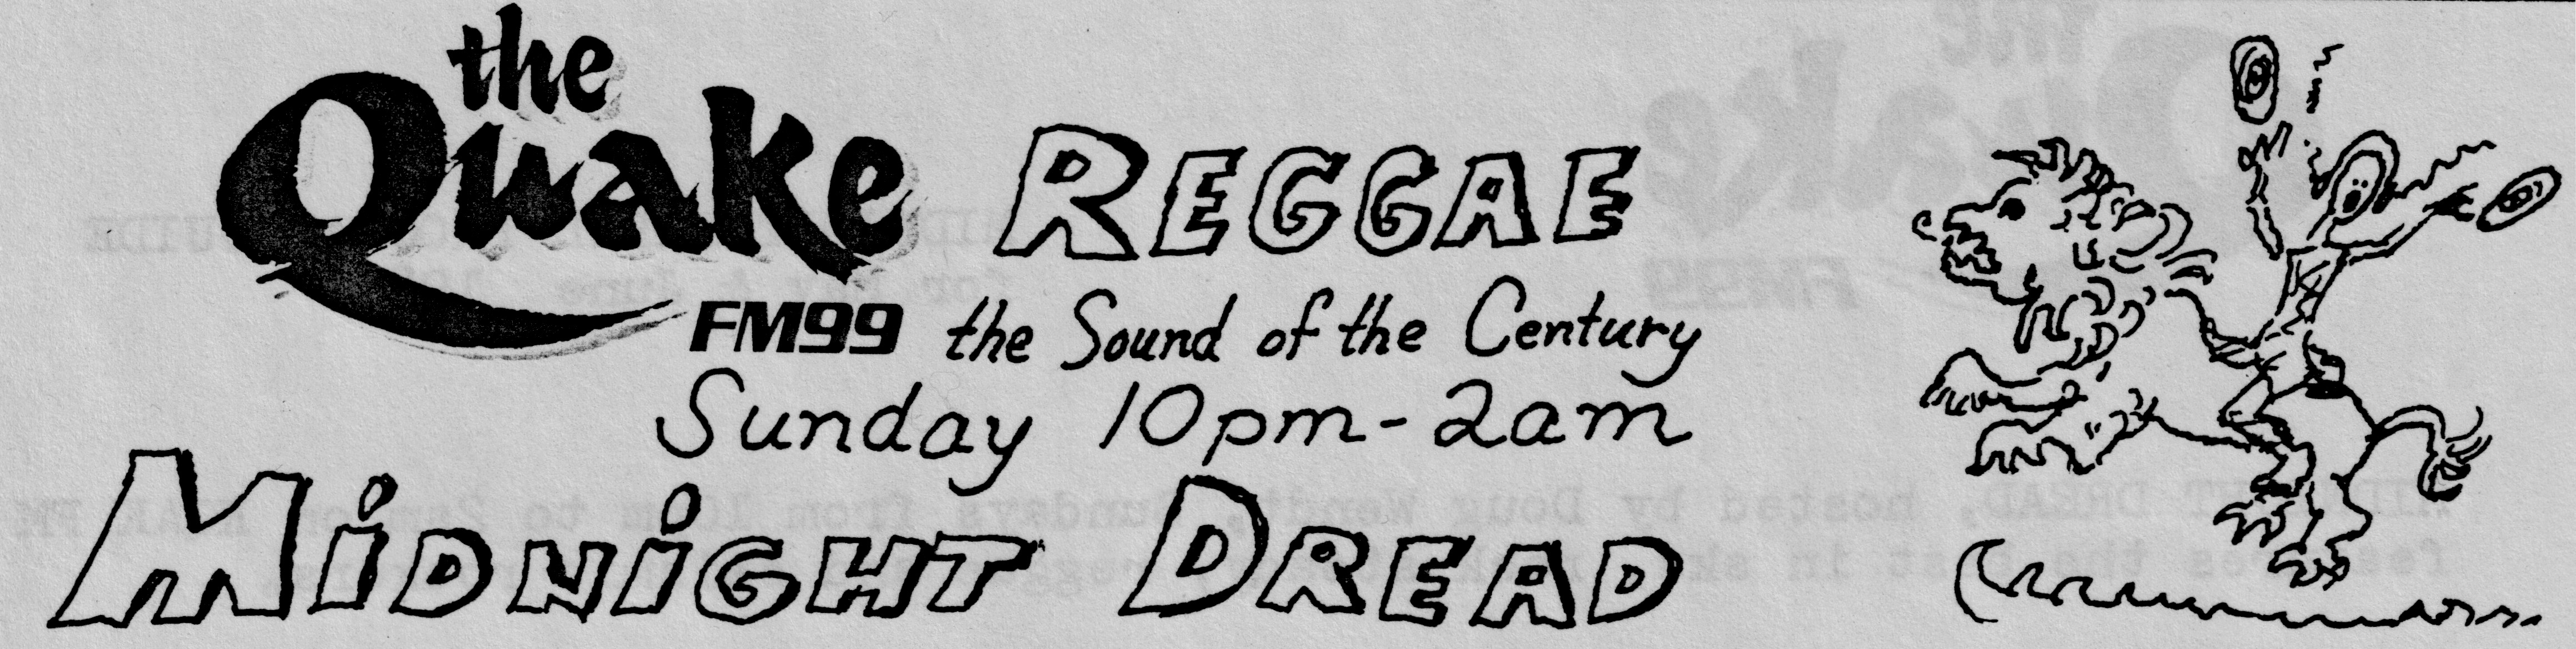 the
Quake REGGAE
FM99 the Sound of the Century
Sunday 10pm-2am
MIDNIGHT DREAD